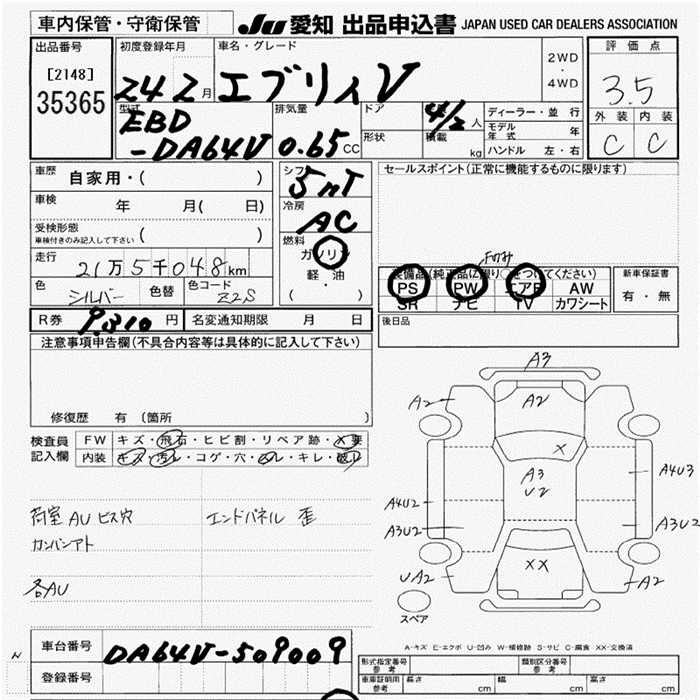 車内保管・守衛保管
JU 愛知 出品申込書 JAPAN USED CAR DEALERS ASSOCIATION
出品番号
[2148]
35365
初度登録年月
24 2 月
車名・グレード
エブリィV
2WD
・
4WD
評価点
3.5
外装 内装
C C
型式
EBD
-DA64V
排気量
0.65 CC
ドア
形状
4/2 人
積載 kg
ディーラー・並行
モデル年式 年
ハンドル 左・右
車歴
自家用・( )
車検 年 月( 日)
受検形態
車検付きのみ記入して下さい ( )
走行
21万5千048km
色 シルバー 色替 色コード Z2S
R券 9,310 円 名変通知期限 月 日
シフト
5MT
冷房
AC
燃料
ガソリン
軽・油
( ・ )
セールスポイント(正常に機能するものに限ります)
Fのみ
装備品(純正品に限り○をつけてください)
PS PW エアB AW
SR ナビ TV カワシート
新車保証書
有・無
後日品
注意事項申告欄(不具合内容等は具体的に記入して下さい)
修復歴 有〔箇所 〕
検査員
記入欄
FW キズ・飛石・ヒビ割・リペア跡・X要
内装 キズ・汚レ・コゲ・穴・ ・キレ・破レ
荷室AU ビス穴 エンドパネル 歪
カンバンアト
各AU
A3
A2
A2
X
A3
U2
A4U3
A4U2
A3U2
A3U2
XX
UA2
A2
スペア
A-キズ E-エクボ U-凹み W-補修跡 S-サビ C-腐食 XX-交換済
車台番号 DA64V-509009
登録番号
型式指定番号 参考
類別区分番号 参考
車庫証明用 参考 長さ cm 幅 cm 高さ cm